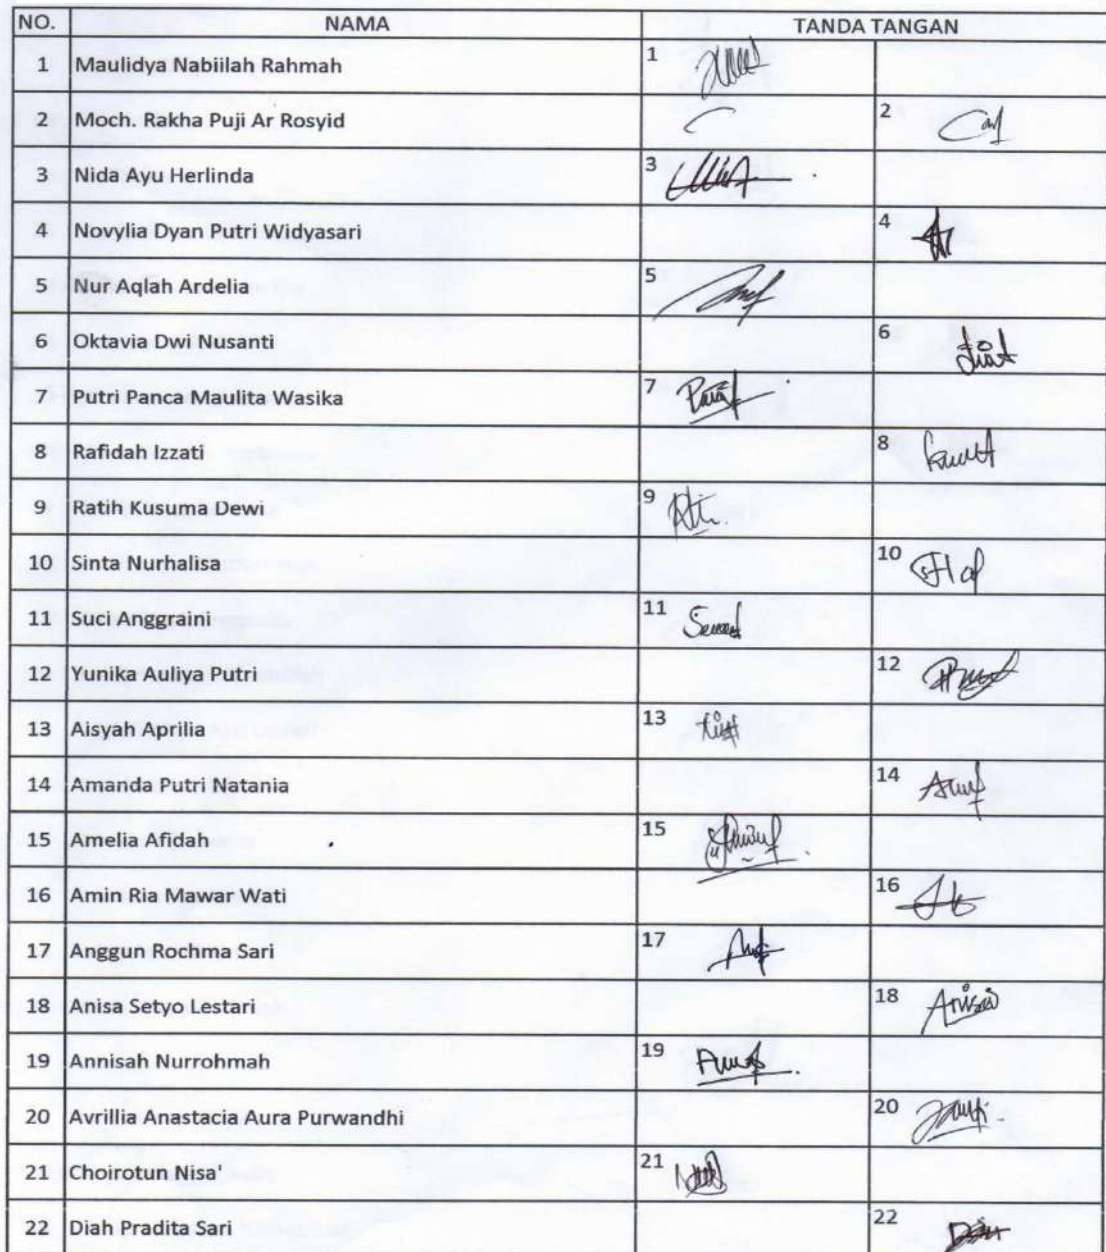 NO. NAMA TANDA TANGAN
1 Maulidya Nabiilah Rahmah 1
2 Moch. Rakha Puji Ar Rosyid 2
3 Nida Ayu Herlinda 3
4 Novylia Dyan Putri Widyasari 4
5 Nur Aqlah Ardelia 5
6 Oktavia Dwi Nusanti 6
7 Putri Panca Maulita Wasika 7
8 Rafidah Izzati 8
9 Ratih Kusuma Dewi 9
10 Sinta Nurhalisa 10
11 Suci Anggraini 11
12 Yunika Auliya Putri 12
13 Aisyah Aprilia 13
14 Amanda Putri Natania 14
15 Amelia Afidah 15
16 Amin Ria Mawar Wati 16
17 Anggun Rochma Sari 17
18 Anisa Setyo Lestari 18
19 Annisah Nurrohmah 19
20 Avrillia Anastacia Aura Purwandhi 20
21 Choirotun Nisa' 21
22 Diah Pradita Sari 22